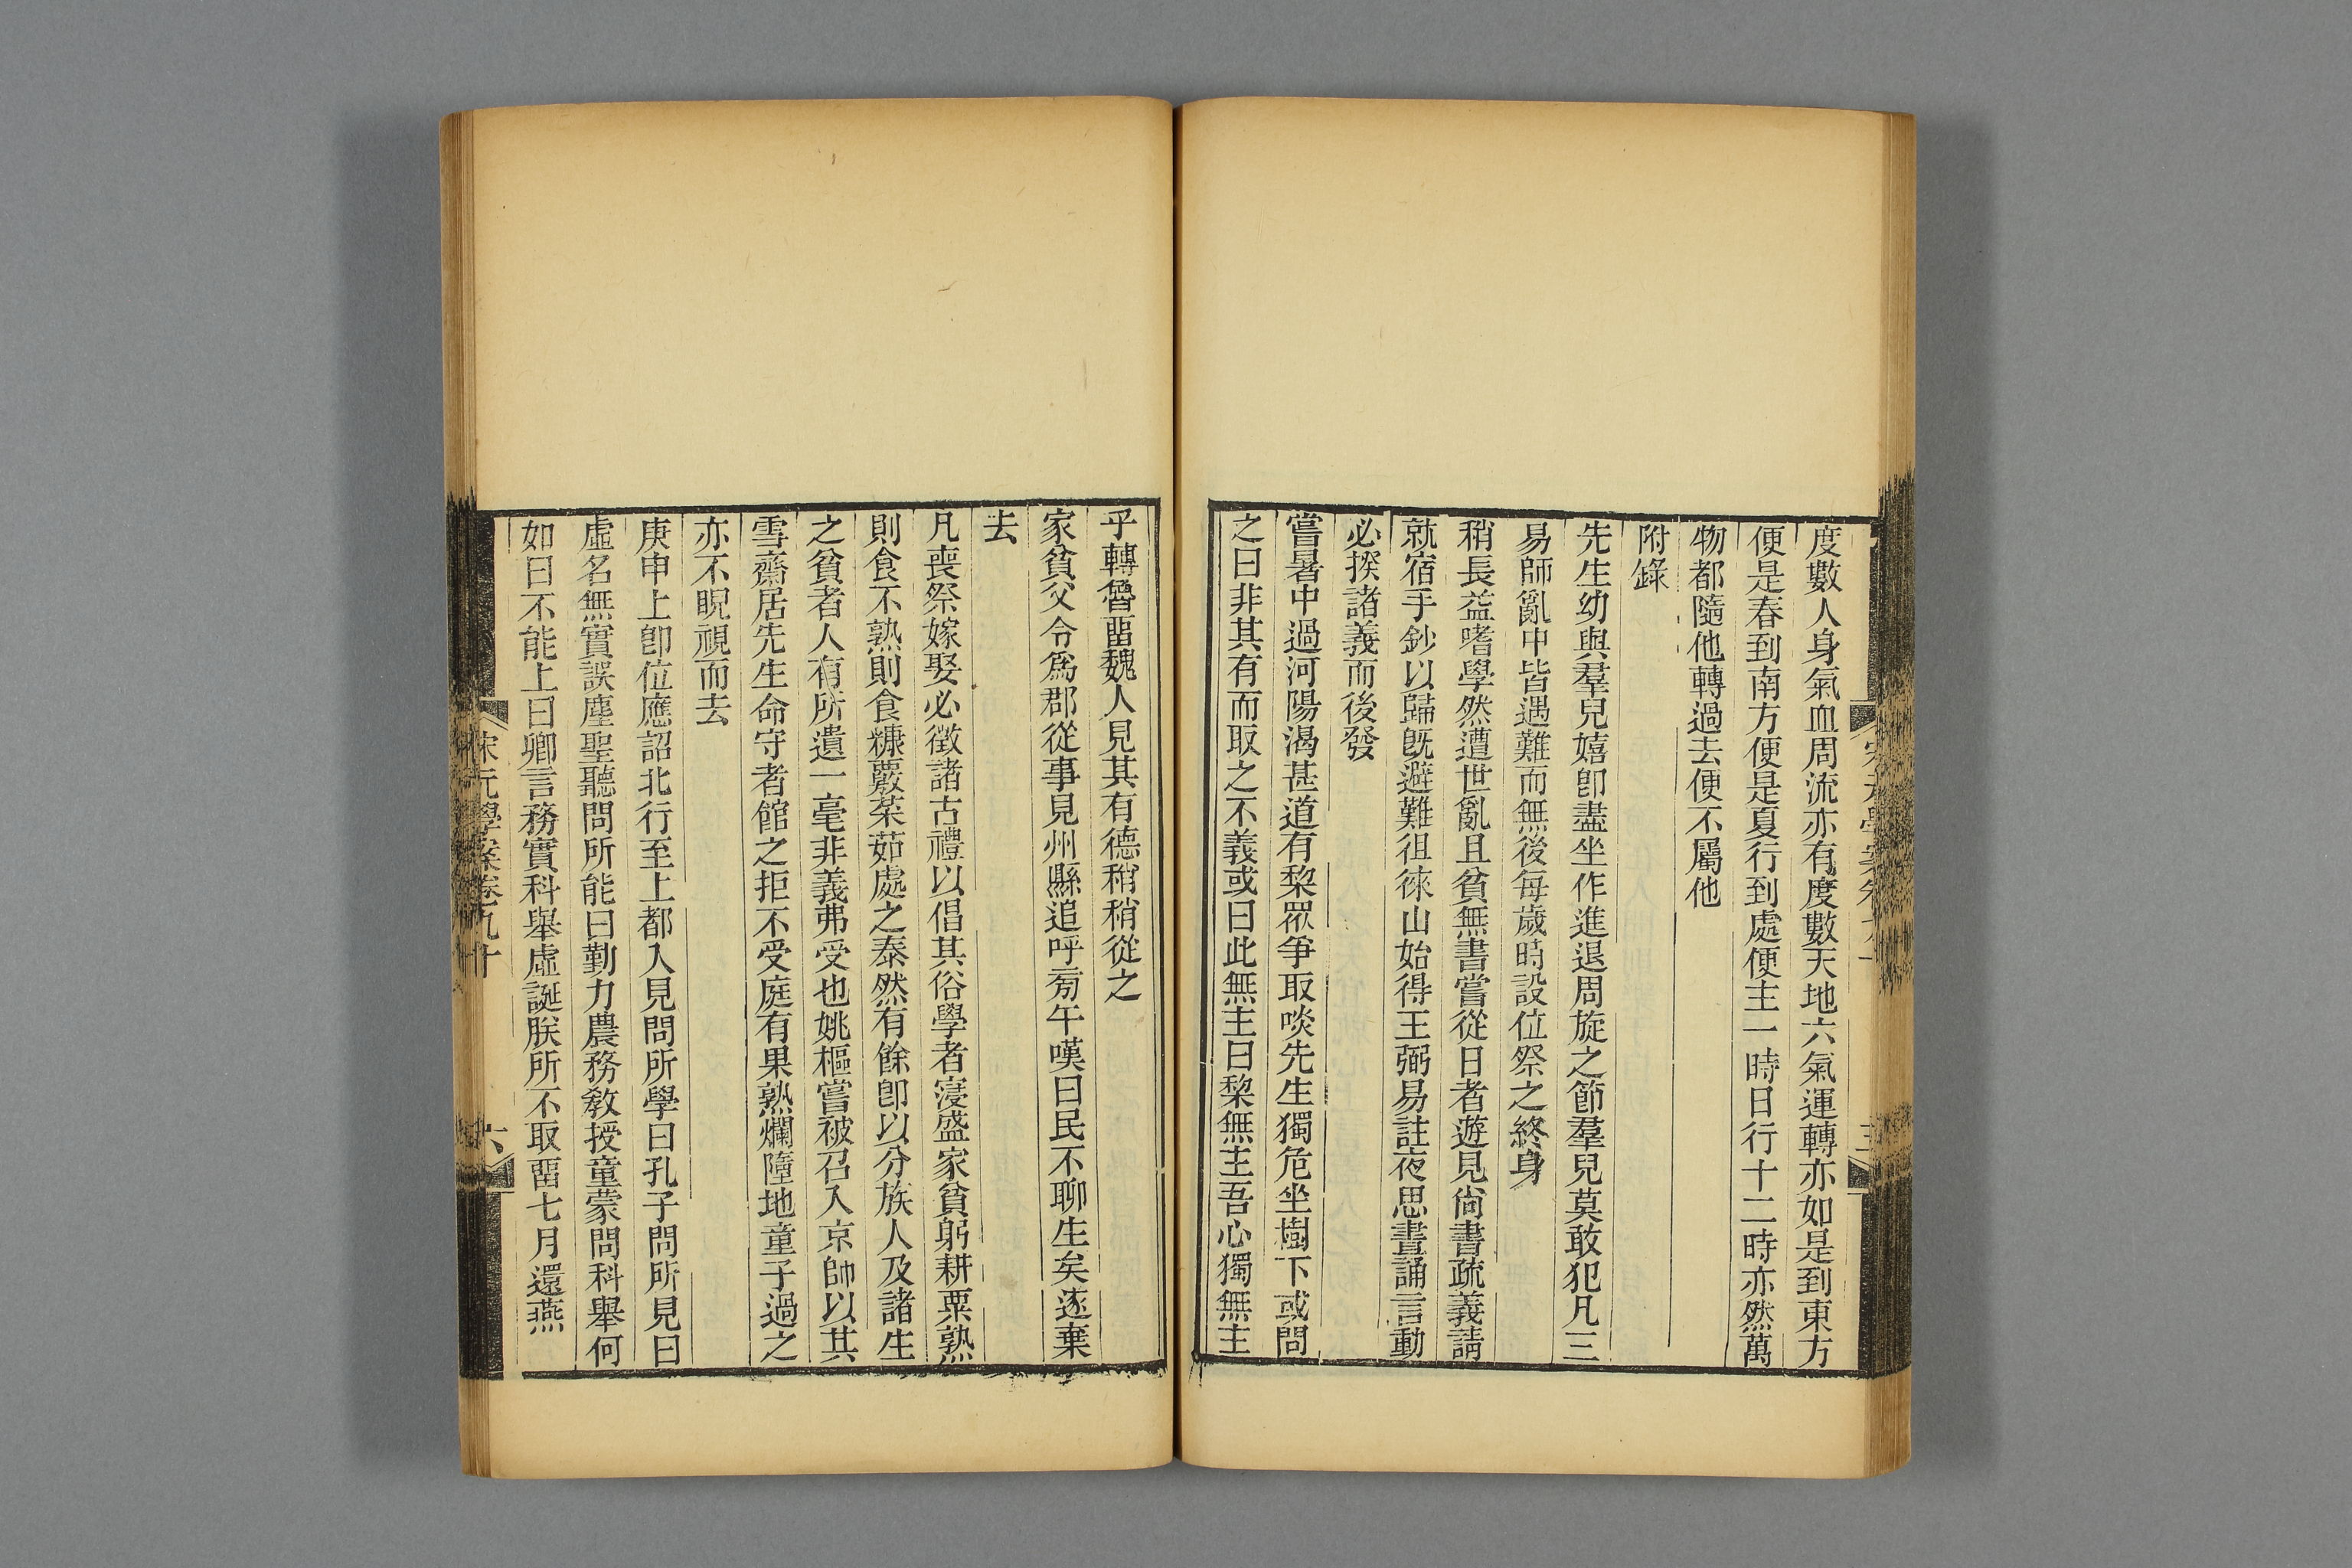 度數人身氣血周流亦有度數天地六氣運轉亦如是到東方
便是春到南方便是夏行到處便主一時日行十二時亦然萬
物都隨他轉過去便不屬他
附錄
先生幼與羣兒嬉卽盡坐作進退周旋之節羣兒莫敢犯凡三
易師亂中皆遇難而無後每歲時設位祭之終身
稍長益嗜學然遭世亂且貧無書嘗從日者遊見尙書疏義請
就宿手鈔以歸旣避難徂徠山始得王弼易註夜思晝誦言動
必揆諸義而後發
嘗暑中過河陽渴甚道有黎眾爭取啖先生獨危坐樹下或問
之曰非其有而取之不義或曰此無主曰黎無主吾心獨無主
乎轉魯畱魏人見其有德稍稍從之
家貧父令爲郡從事見州縣追呼旁午嘆曰民不聊生矣遂棄
去
凡喪祭嫁娶必徵諸古禮以倡其俗學者寖盛家貧躬耕粟熟
則食不熟則食糠覈菜茹處之泰然有餘卽以分族人及諸生
之貧者人有所遺一毫非義弗受也姚樞嘗被召入京師以其
雪齋居先生命守者館之拒不受庭有果熟爛墮地童子過之
亦不睨視而去
庚申上卽位應詔北行至上都入見問所學曰孔子問所見曰
虛名無實誤塵聖聽問所能曰勤力農務敎授童蒙問科舉何
如曰不能上曰卿言務實科舉虛誕朕所不取畱七月還燕
宋元學案卷九十
六